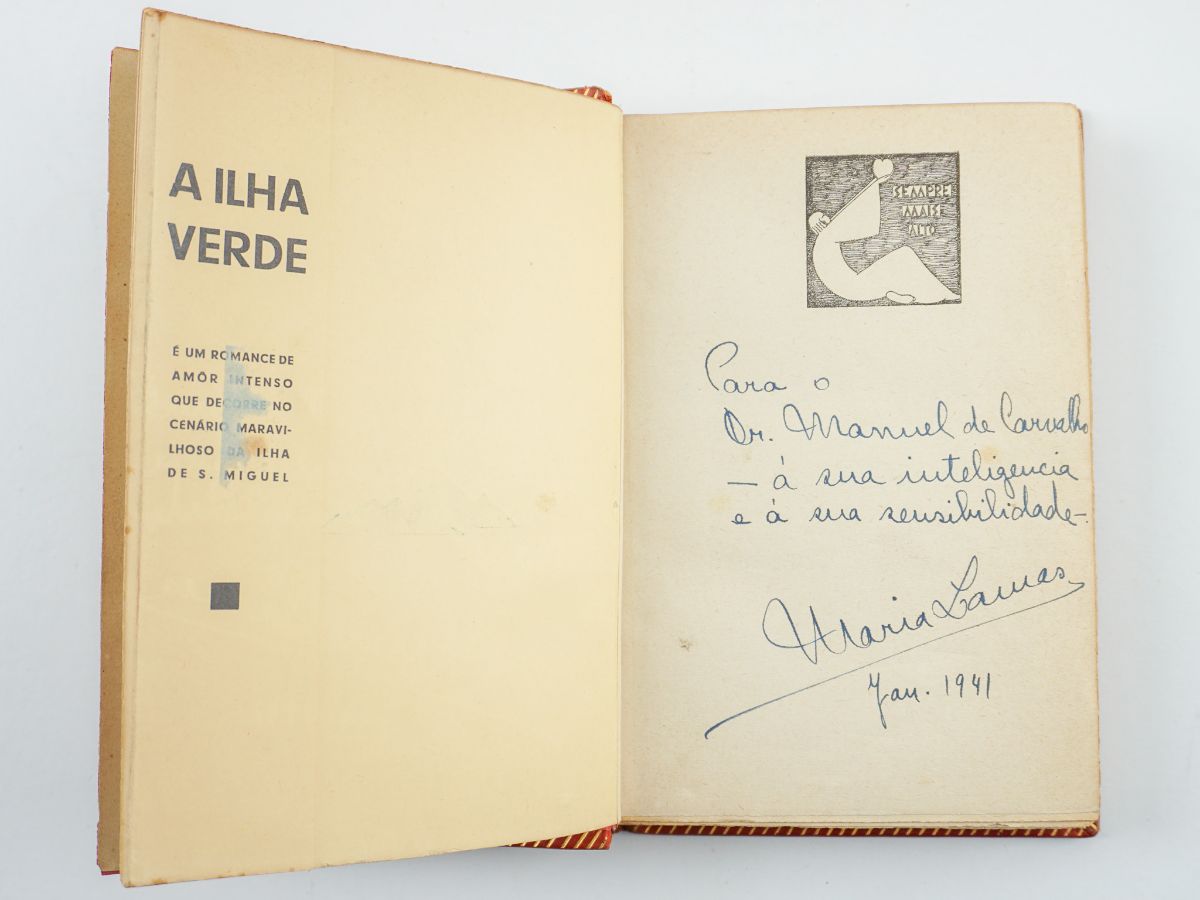 A ILHA
VERDE
É UM ROMANCE DE
AMÔR INTENSO
QUE DECORRE NO
CENÁRIO MARAVI-
LHOSO DA ILHA
DE S. MIGUEL
SEMPRE
MAIS
ALTO
Para o
Dr. Manuel de Carvalho
— á sua inteligencia
e á sua sensibilidade —.
Maria Lamas
Jan. 1941